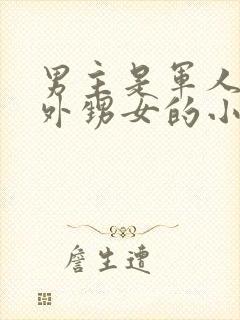 男主是軍人
外甥女的小
詹生遭